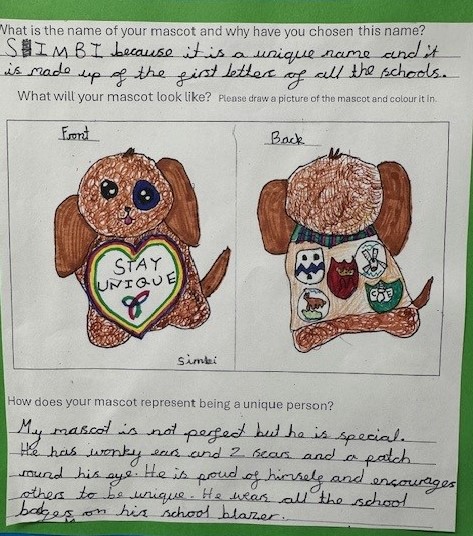 What is the name of your mascot and why have you chosen this name?
SIMBI because it is a unique name and it
is made up of the first letters of all the schools.
What will your mascot look like? Please draw a picture of the mascot and colour it in.
Front
Back
STAY
UNIQUE
Simbi
How does your mascot represent being a unique person?
My mascot is not perfect but he is special.
He has wonky ears and 2 scars and a patch
round his eye. He is proud of himself and encourages
others to be unique. He wears all the school
badges on his school blazer.